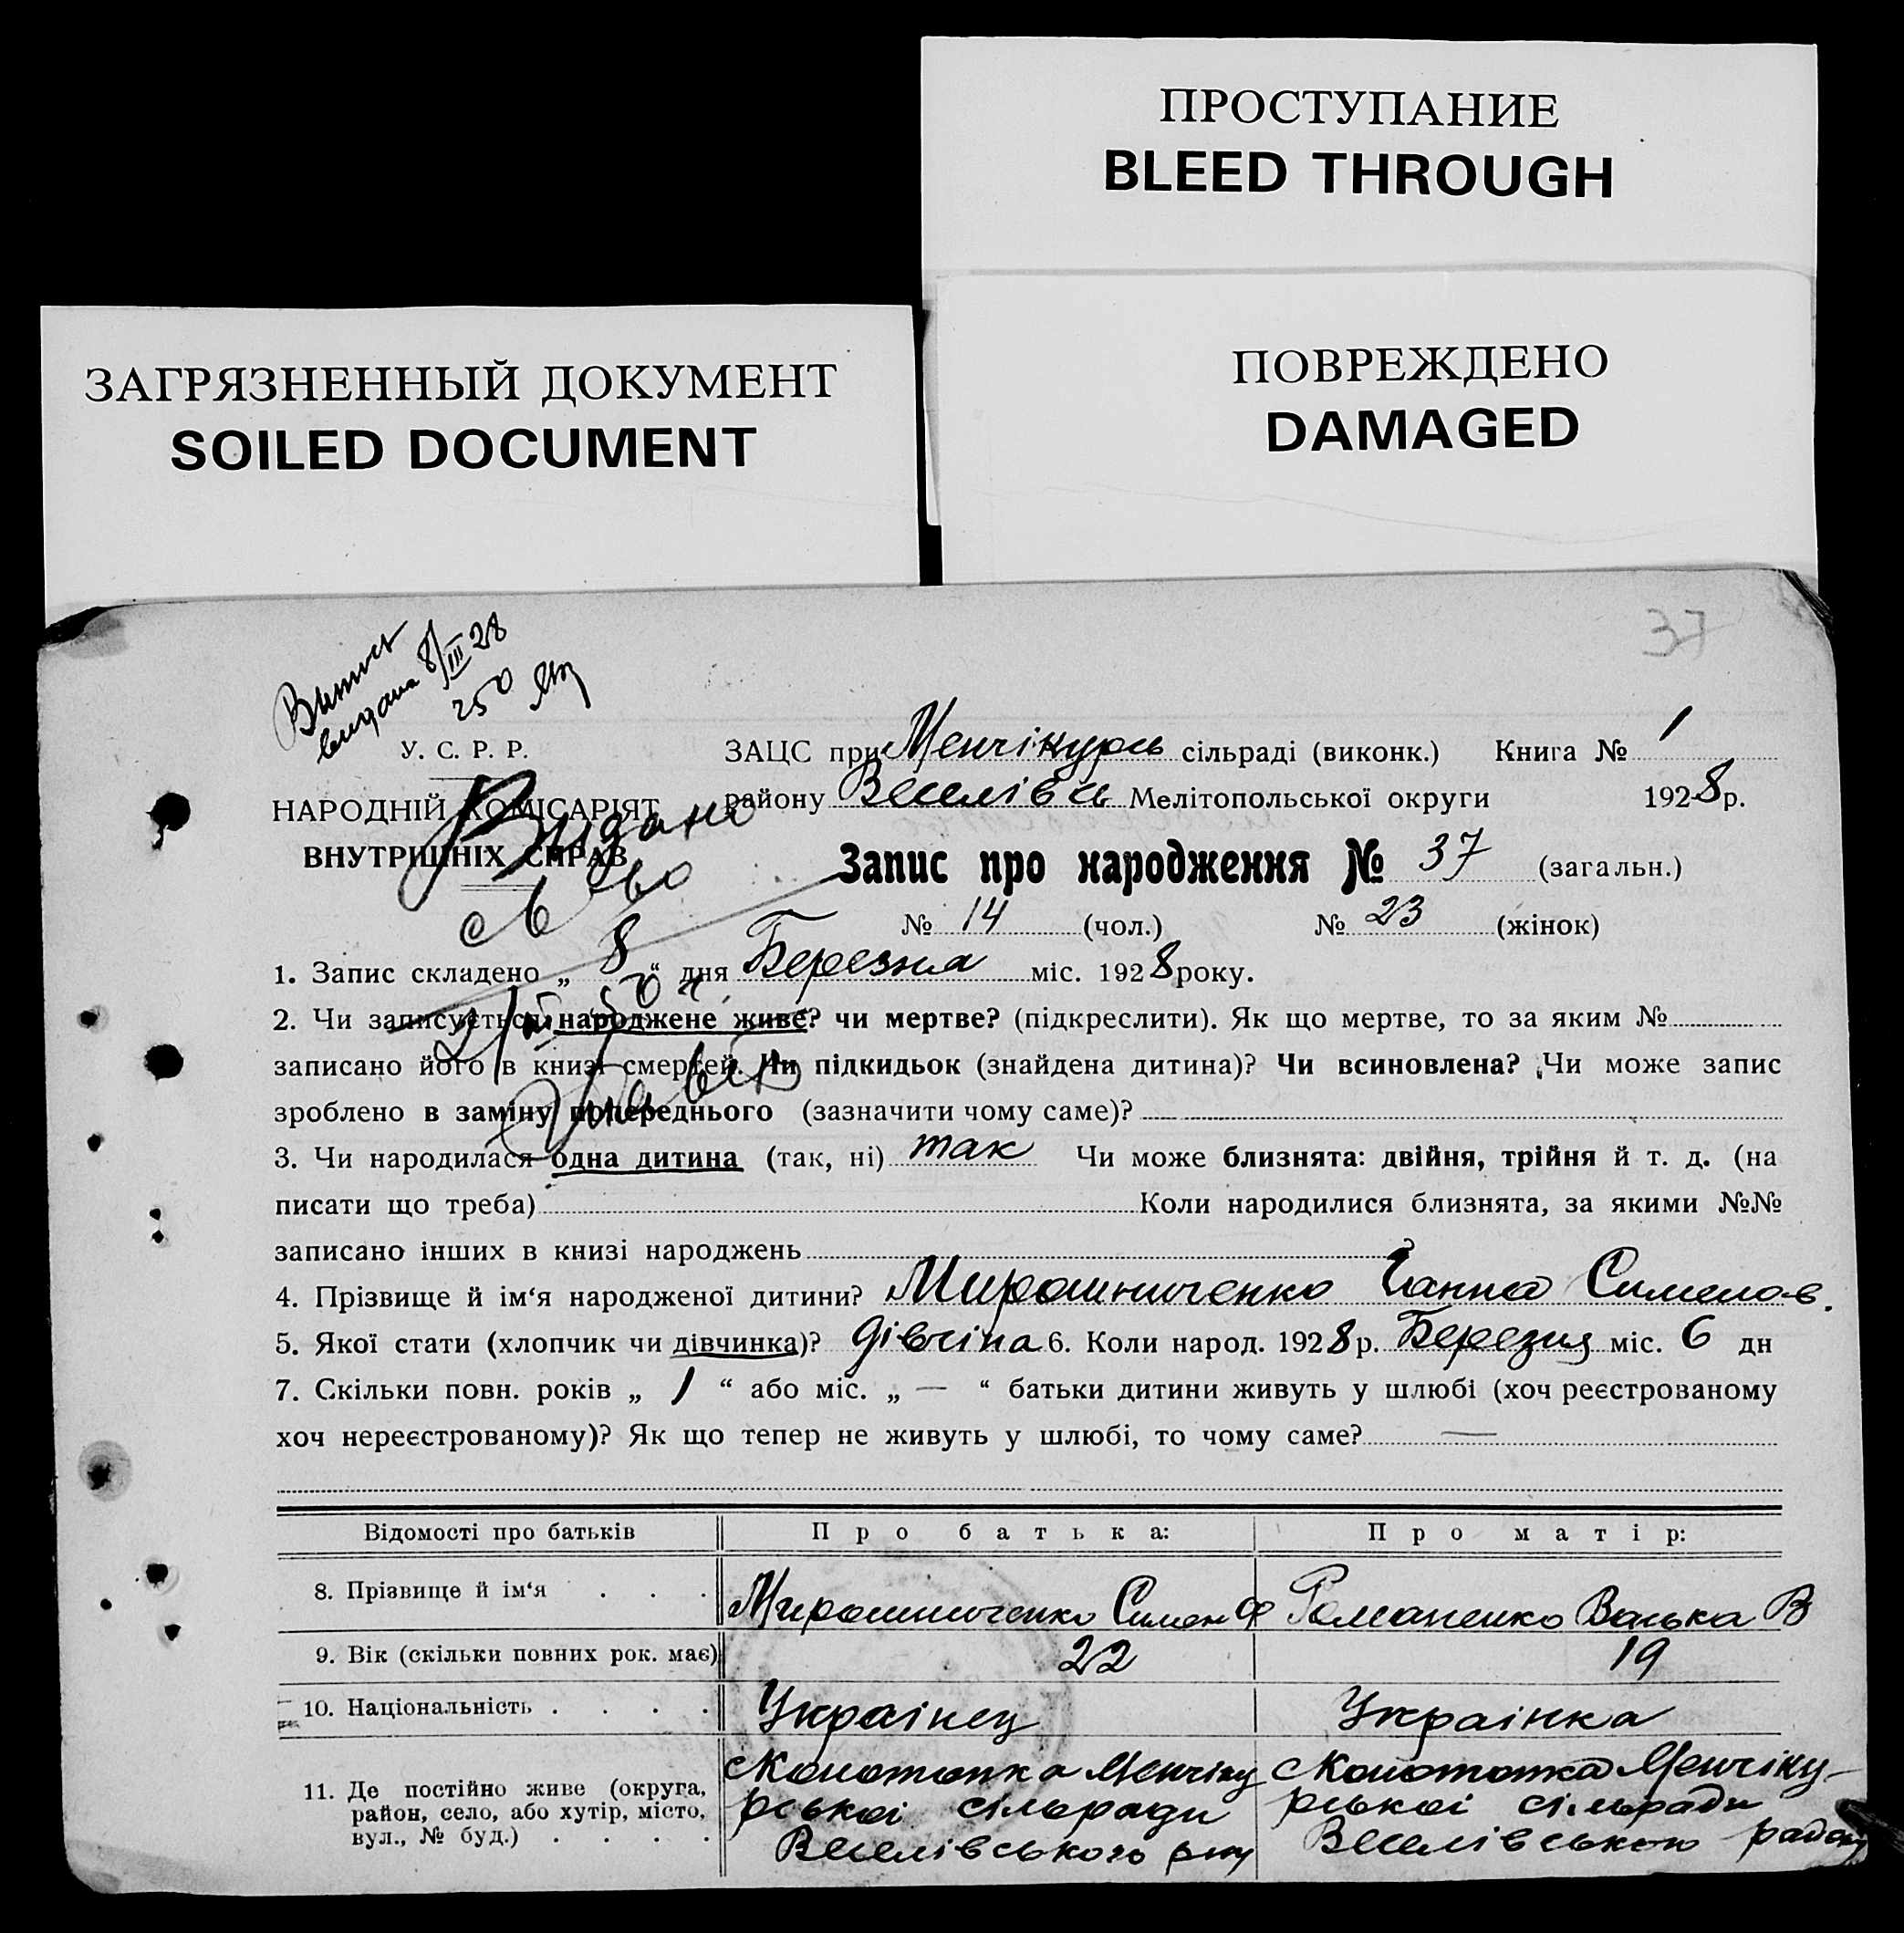 ПРОСТУПАНИЕ
BLEED THROUGH
ЗАГРЯЗНЕННЫЙ ДОКУМЕНТ
SOILED DOCUMENT
ПОВРЕЖДЕНО
DAMAGED
37
Випись
видана 8/III 28
250
У. С. Р. Р.
НАРОДНІЙ КОМІСАРІЯТ
ВНУТРІШНІХ СПРАВ
Видано
св во
ЗАЦС при Менчікурсь сільраді (виконк.) Книга № 1
району Веселівсь Мелітопольської округи 1928 р.
Запис про народження № 37 (загальн.)
№ 14 (чол.) № 23 (жінок)
1. Запис складено „ 8 “ дня Березня міс. 1928 року.
2. Чи записується народжене живе? чи мертве? (підкреслити). Як що мертве, то за яким №
записано його в книзі смертей. Чи підкидьок (знайдена дитина)? Чи всиновлена? Чи може запис
зроблено в заміну попереднього (зазначити чому саме)?
3. Чи народилася одна дитина (так, ні) так Чи може близнята: двійня, трійня й т. д. (на
писати що треба) Коли народилися близнята, за якими №№
записано інших в книзі народжень
4. Прізвище й ім‘я народженої дитини? Мирошниченко Ганна Сименов.
5. Якої стати (хлопчик чи дівчинка)? дівчіна 6. Коли народ. 1928 р. Березня міс. 6 дн
7. Скільки повн. років „ 1 “ або міс. „ — “ батьки дитини живуть у шлюбі (хоч реєстрованому
хоч нереєстрованому)? Як що тепер не живуть у шлюбі, то чому саме? —
Відомості про батьків Про батька: Про матір:
8. Прізвище й ім‘я . . . Мирошниченко Симен Ф Романенко Васька В
9. Вік (скільки повних рок. має) 22 19
10. Національність . . . . Украінец Украінка
11. Де постійно живе (округа, район, село, або хутір, місто, вул., № буд.) . . . .
с Конотопка Менчіку
рськоі сільради
Веселівського рну
с Конотопка Менчіку-
рськоі сільради
Веселівського району